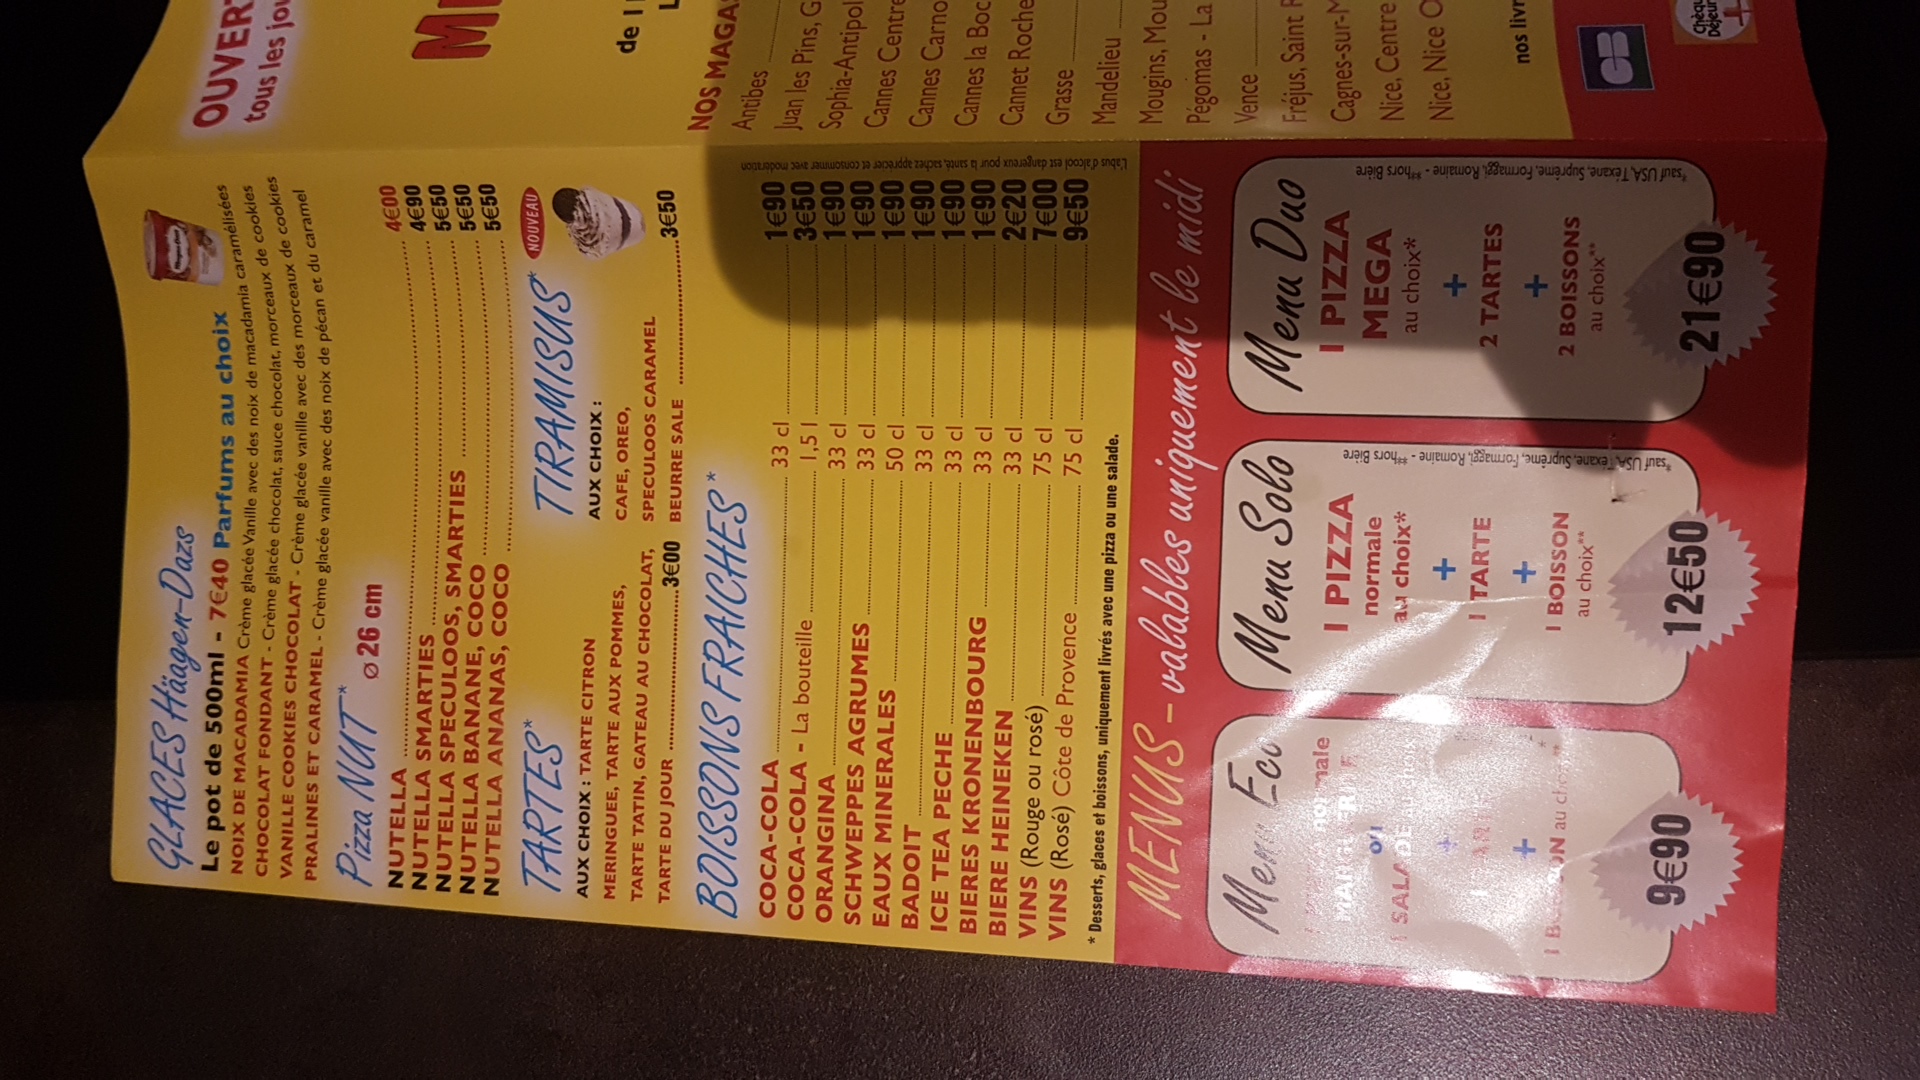 GLACES Häagen-Dazs
Le pot de 500ml - 7€40 Parfums au choix
NOIX DE MACADAMIA Crème glacée Vanille avec des noix de macadamia caramélisées
CHOCOLAT FONDANT - Crème glacée chocolat, sauce chocolat, morceaux de cookies
VANILLE COOKIES CHOCOLAT - Crème glacée vanille avec des morceaux de cookies
PRALINES ET CARAMEL - Crème glacée vanille avec des noix de pécan et du caramel
Pizza NUIT* ø 26 cm
NUTELLA 4€00
NUTELLA SMARTIES 4€90
NUTELLA SPECULOOS, SMARTIES 5€50
NUTELLA BANANE, COCO 5€50
NUTELLA ANANAS, COCO 5€50
TARTES*
AUX CHOIX : TARTE CITRON
MERINGUEE, TARTE AUX POMMES,
TARTE TATIN, GATEAU AU CHOCOLAT,
TARTE DU JOUR 3€00
TIRAMISUS* NOUVEAU
AUX CHOIX :
CAFE, OREO,
SPECULOOS CARAMEL
BEURRE SALE 3€50
BOISSONS FRAICHES*
COCA-COLA 33 cl 1€90
COCA-COLA - La bouteille 1,5 l 3€50
ORANGINA 33 cl 1€90
SCHWEPPES AGRUMES 33 cl 1€90
EAUX MINERALES 50 cl 1€90
BADOIT 33 cl 1€90
ICE TEA PECHE 33 cl 1€90
BIERES KRONENBOURG 33 cl 1€90
BIERE HEINEKEN 33 cl 2€20
VINS (Rouge ou rosé) 75 cl 7€00
VINS (Rosé) Côte de Provence 75 cl 9€50
* Desserts, glaces et boissons, uniquement livrés avec une pizza ou une salade.
L'abus d'alcool est dangereux pour la santé, sachez apprécier et consommer avec modération
MENUS - valables uniquement le midi
Menu Eco
normale
MARGUERITE
ou
1 SALADE au choix
+
+
1 BOISSON au choix**
9€90
Menu Solo
1 PIZZA
normale
au choix*
+
1 TARTE
+
1 BOISSON
au choix**
12€50
*sauf USA, Texane, Suprême, Formaggi, Romaine - **hors Bière
Menu Duo
1 PIZZA
MEGA
au choix*
+
2 TARTES
+
2 BOISSONS
au choix**
21€90
*sauf USA, Texane, Suprême, Formaggi, Romaine - **hors Bière
OUVERT
tous les jou
de 11
NOS MAGA
Antibes
Juan les Pins, G
Sophia-Antipol
Cannes Centre
Cannes Carno
Cannes la Boc
Cannet Roche
Grasse
Mandelieu
Mougins, Mou
Pégomas - La
Vence
Fréjus, Saint R
Cagnes-sur-M
Nice, Centre
Nice, Nice O
nos livr
CB
Chèqu
Déjeun